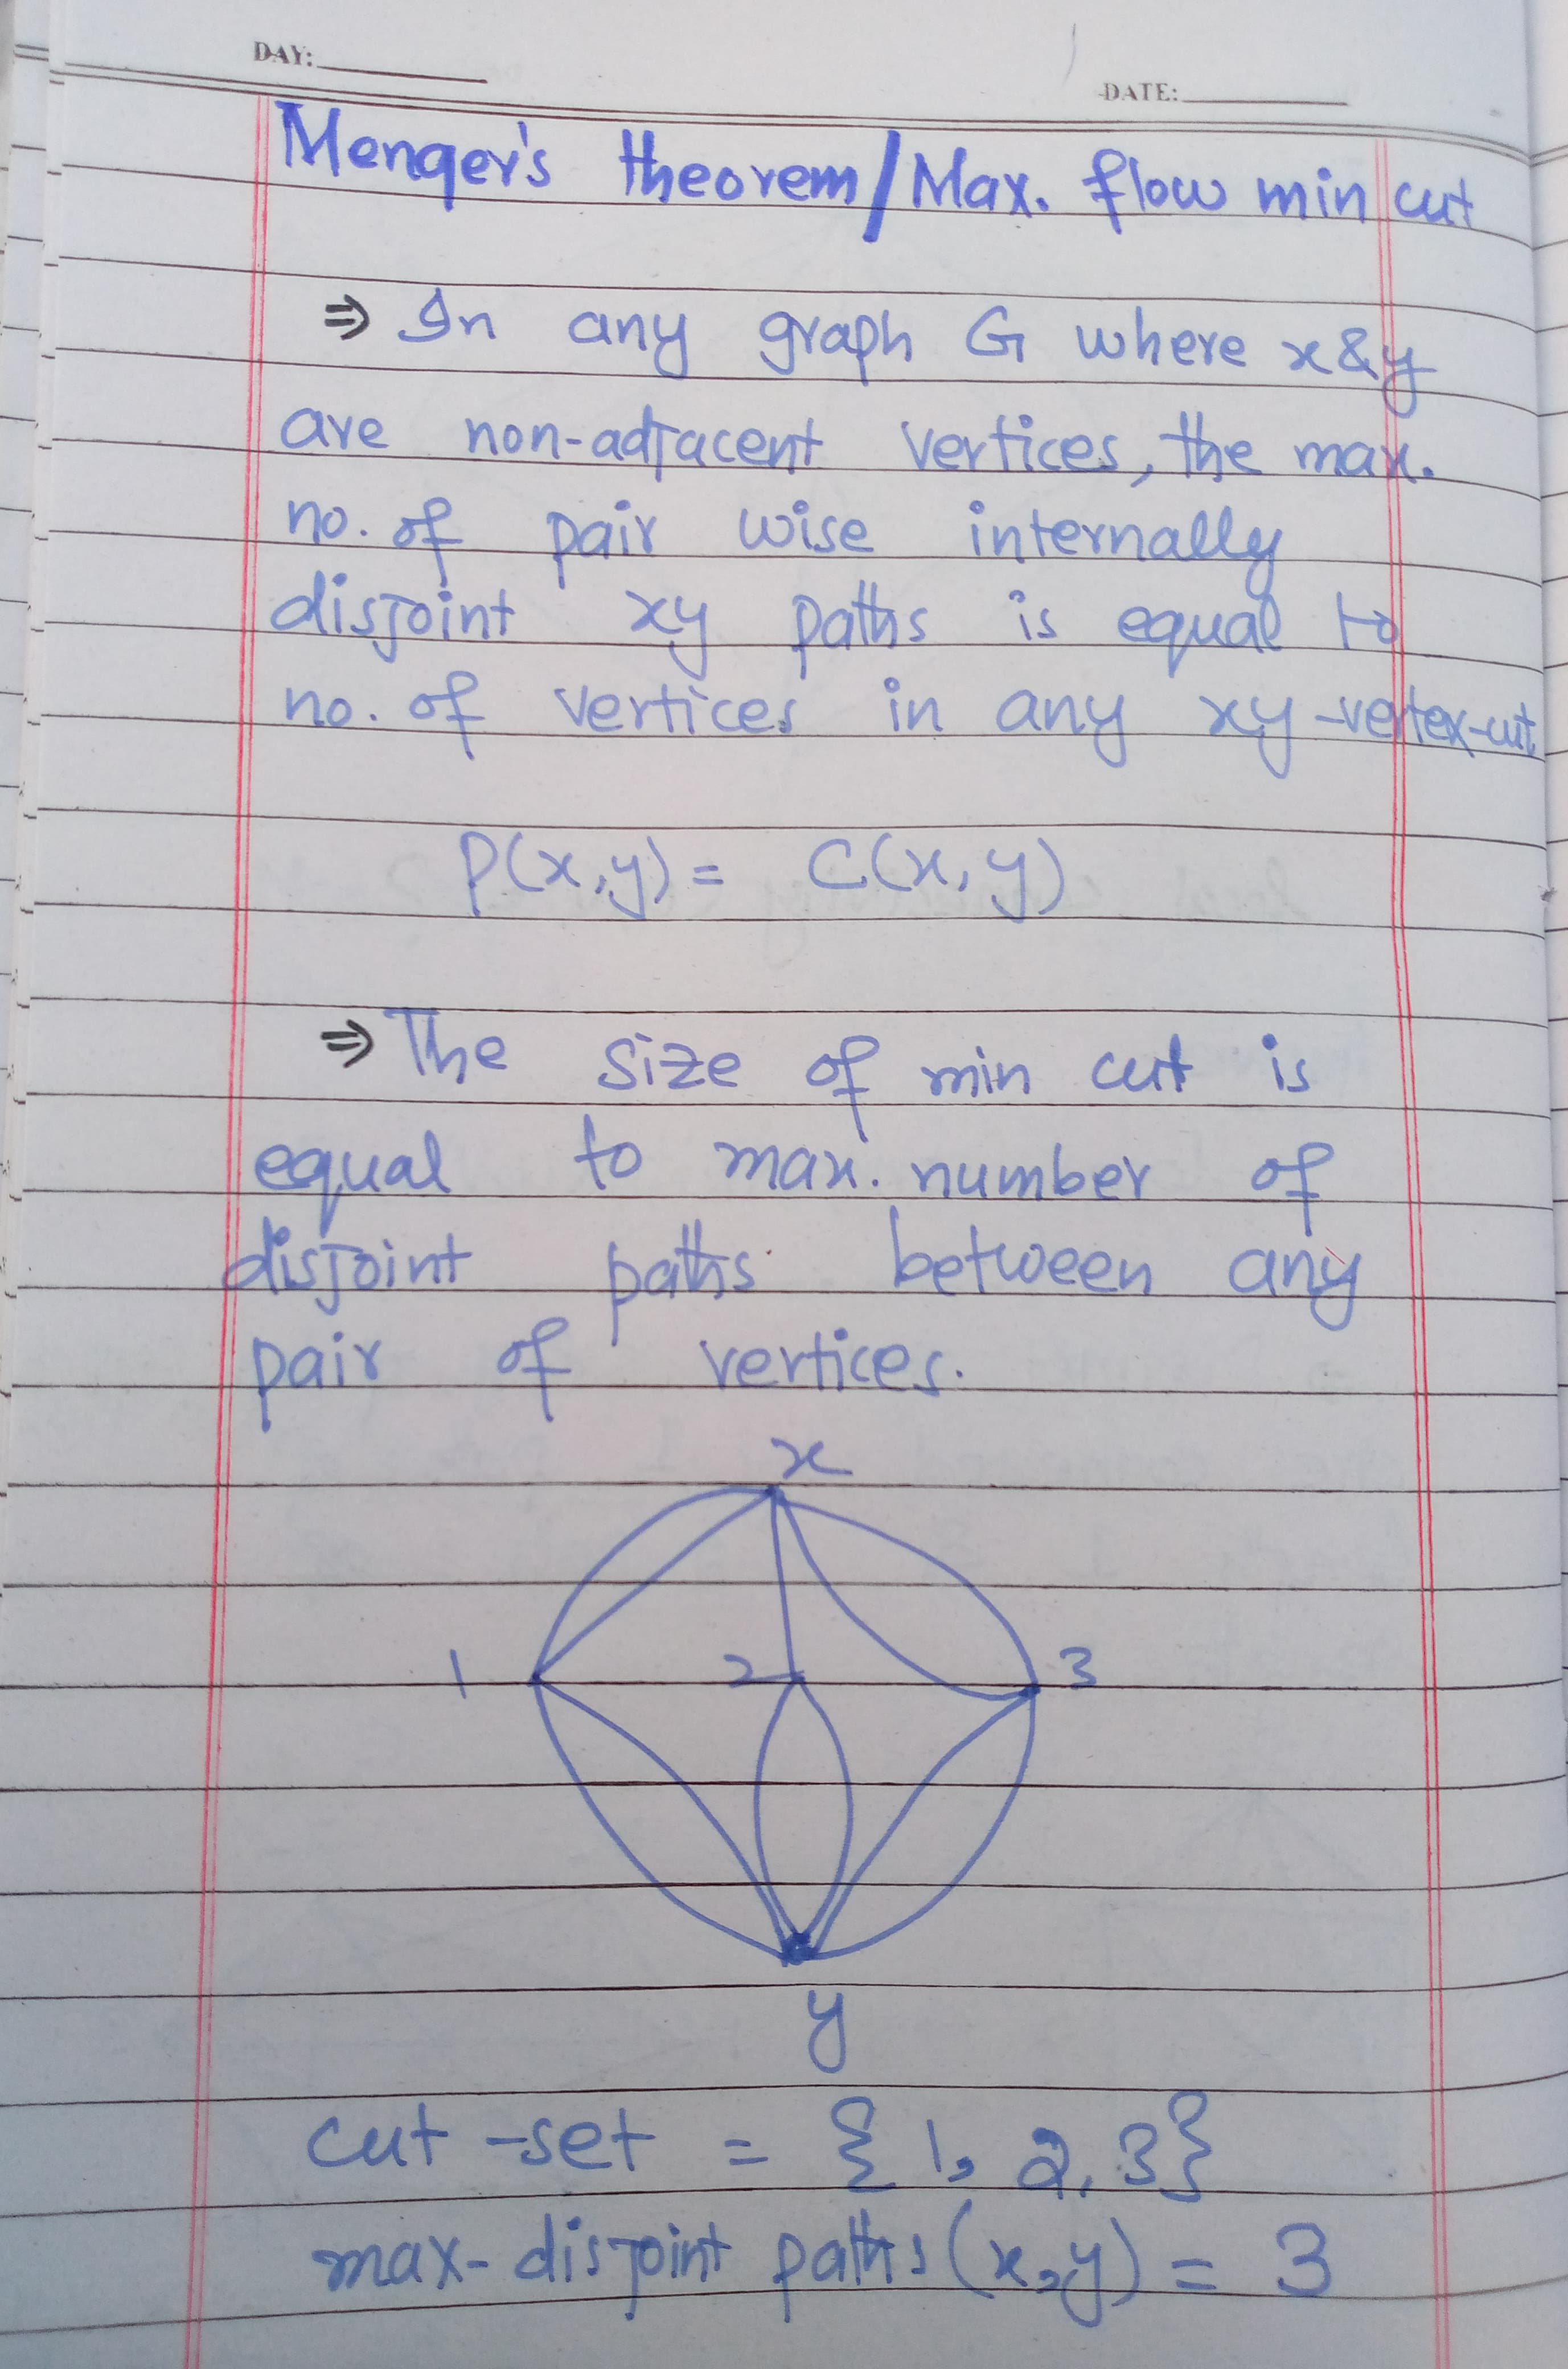 DAY:
DATE:
Menger's theorem/Max. flow min cut
⇒ In any graph G where x & y
are non-adjacent vertices, the max.
no. of pair wise internally
disjoint xy paths is equal to
no. of vertices in any xy-vertex-cut
P(x,y) = C(x,y)
⇒ The size of min cut is
equal to max. number of
disjoint paths between any
pair of vertices.
x
1 2 3
y
cut-set = {1, 2, 3}
max-disjoint paths(x,y) = 3